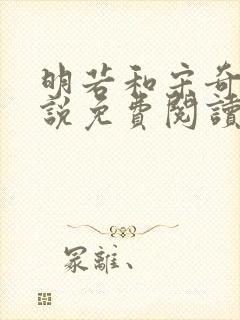 明若和宋奇
說免費閱讀
冢離、